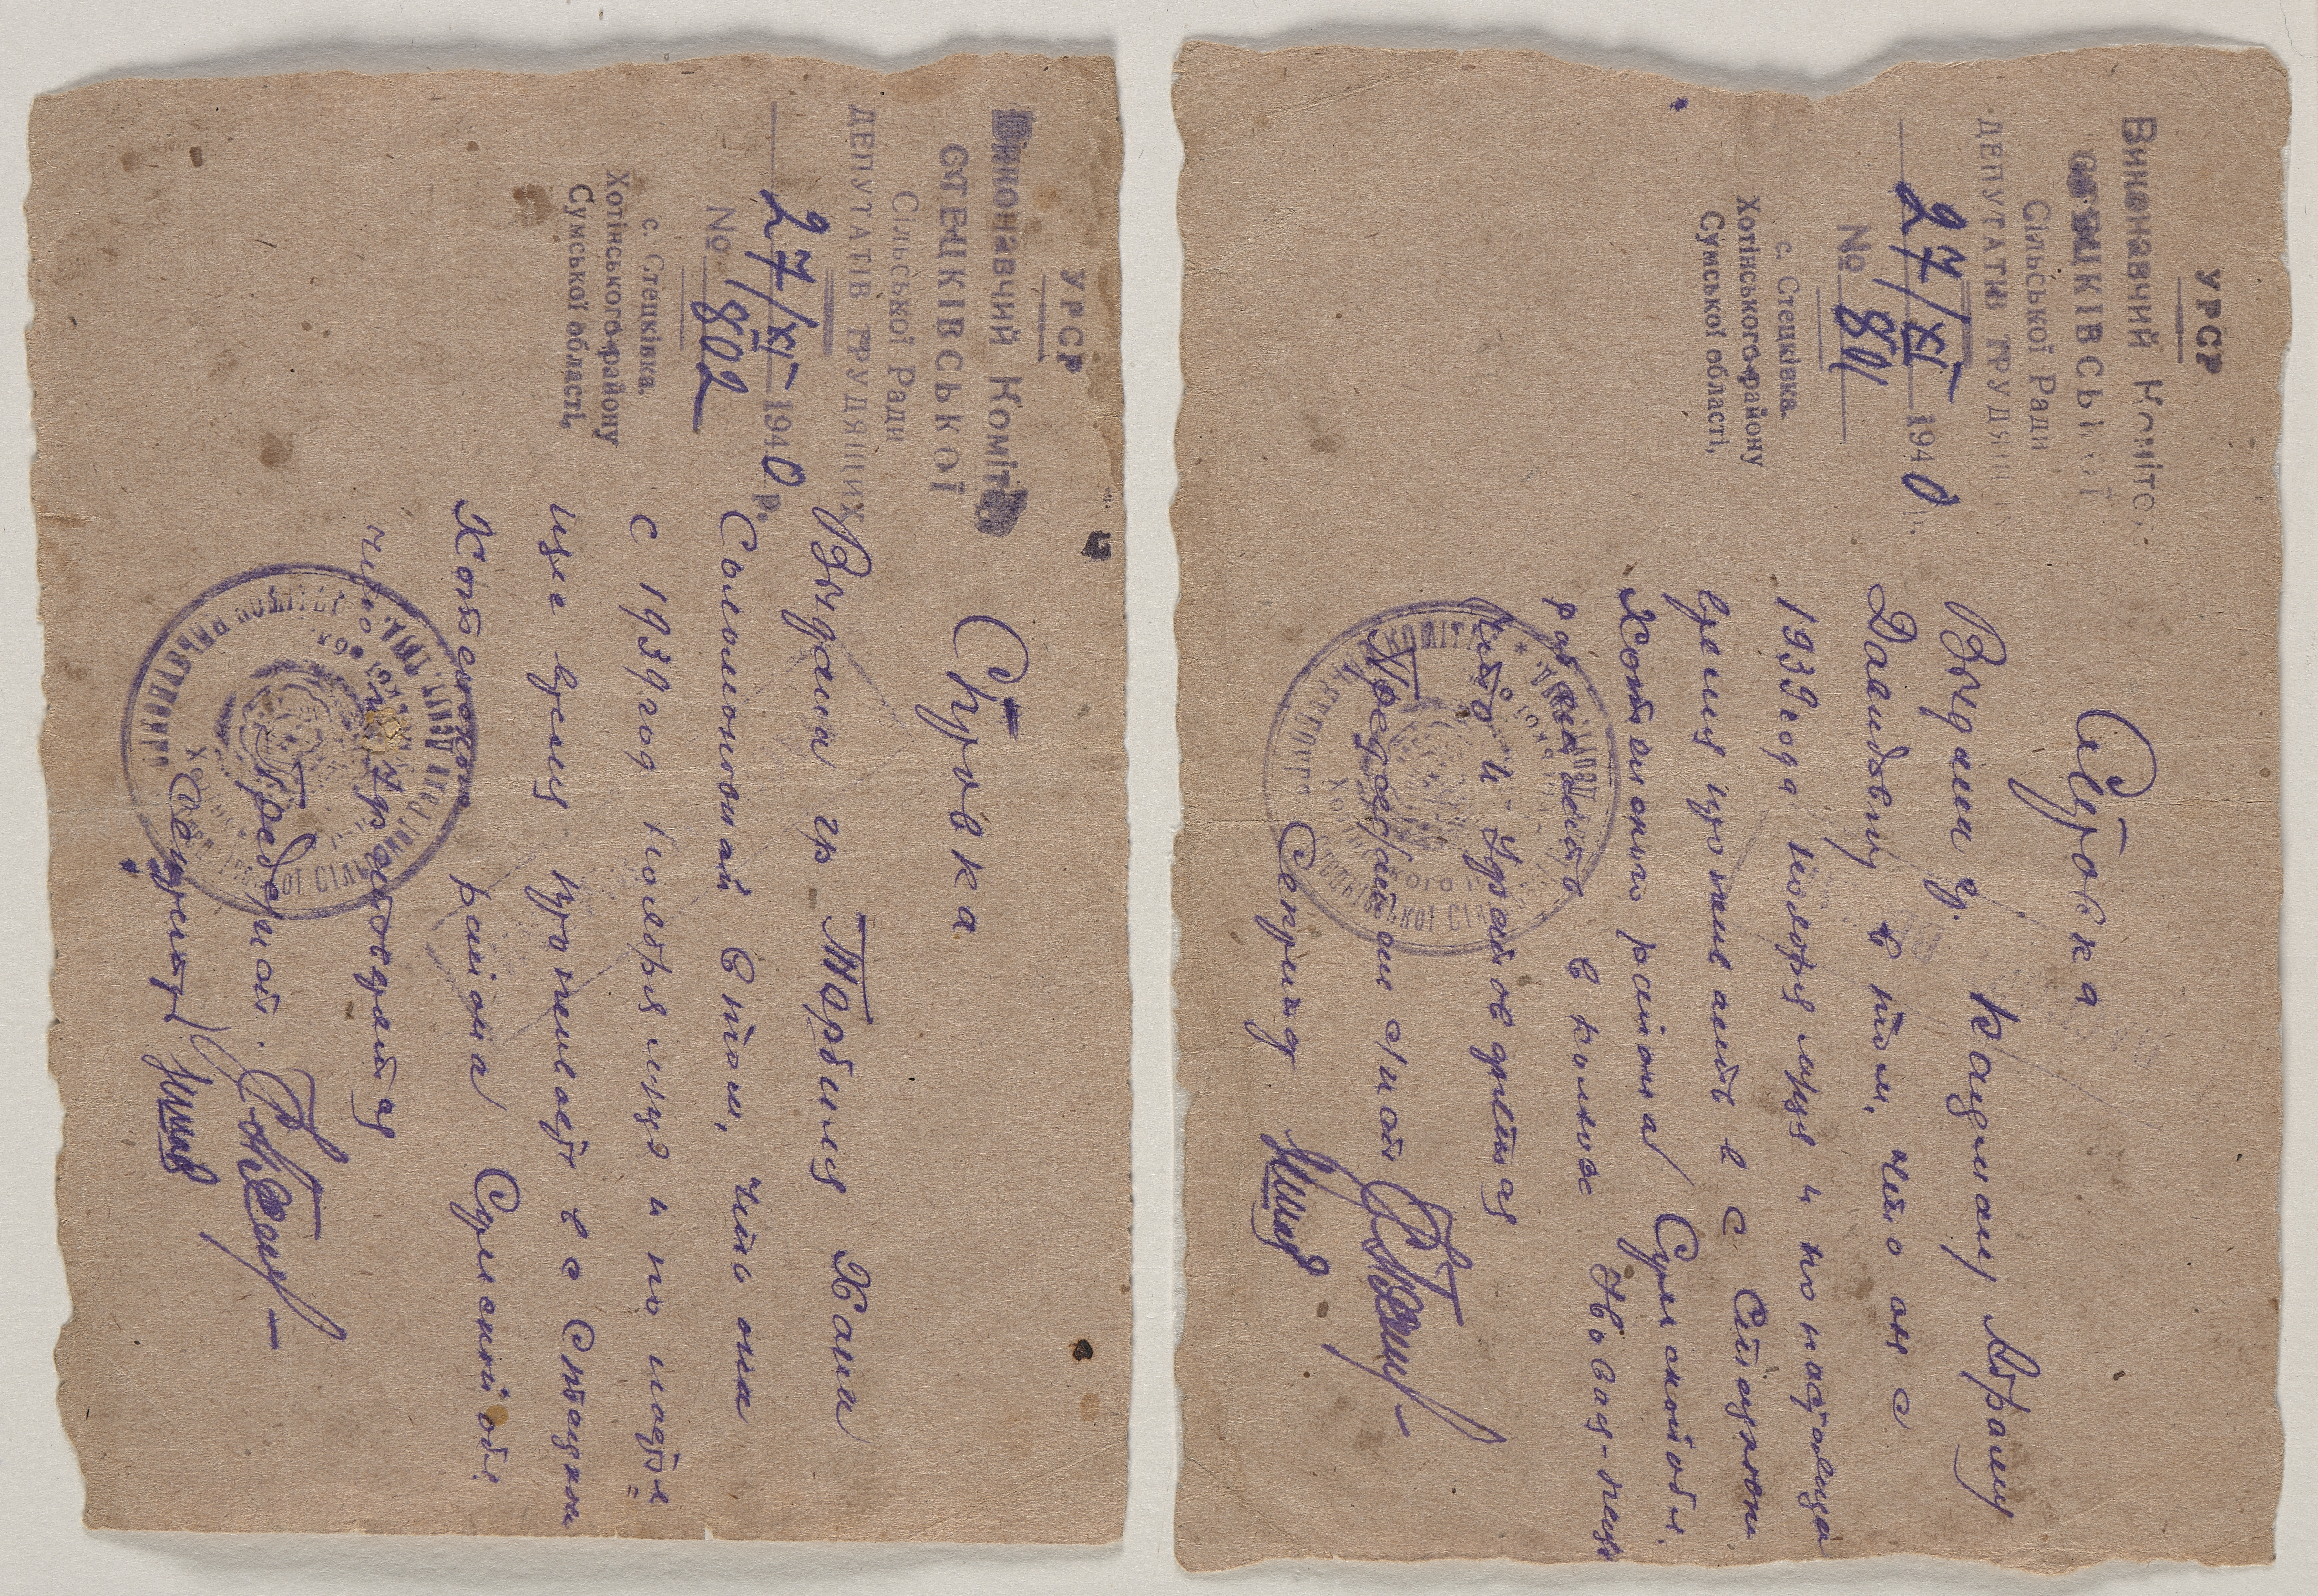 УРСР
Виконавчий Комітет
СТЕЦКІВСЬКОЇ
Сільської Ради
ДЕПУТАТІВ ТРУДЯЩИХ
27/XI 1940 р.
№ 802
с. Стецківка.
Хотінського району
Сумської області,
Справка
Выдана гр Хани
Соломоновной в том, что она
с 1939 год ноября м-ца и по настоя
щее время проживает в с Стецковк
Хотенского района Сумской обл
что и удостоверяется
Предс. с/сов.
Секретарь
УРСР
Виконавчий Комітет
СТЕЦКІВСЬКОЇ
Сільської Ради
ДЕПУТАТІВ ТРУДЯЩИХ
27/XI 1940
№ 801
с. Стецківка.
Хотінського району
Сумської області,
Справка
Выдана г. Кацману Абраму
Давидовичу в том, что он с
1939 года ноября м-ца и по настояще
время проживает в с Стецковк
Хотенского района Сумской обл.
работает в колхозе
что и удостоверяется
Председатель с/сов
Секрет